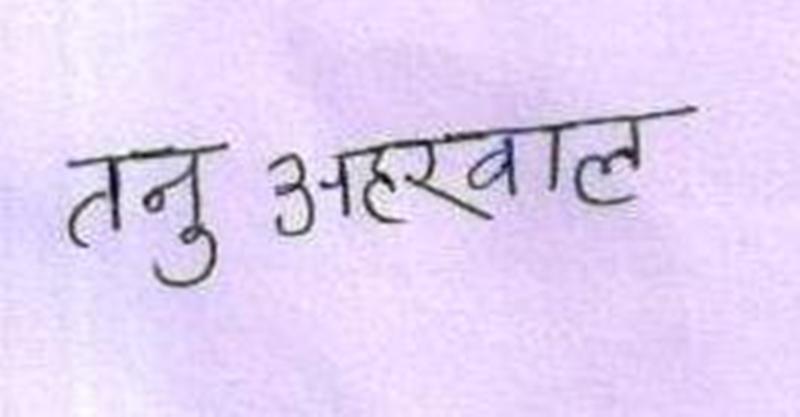 तनु अहरवाल